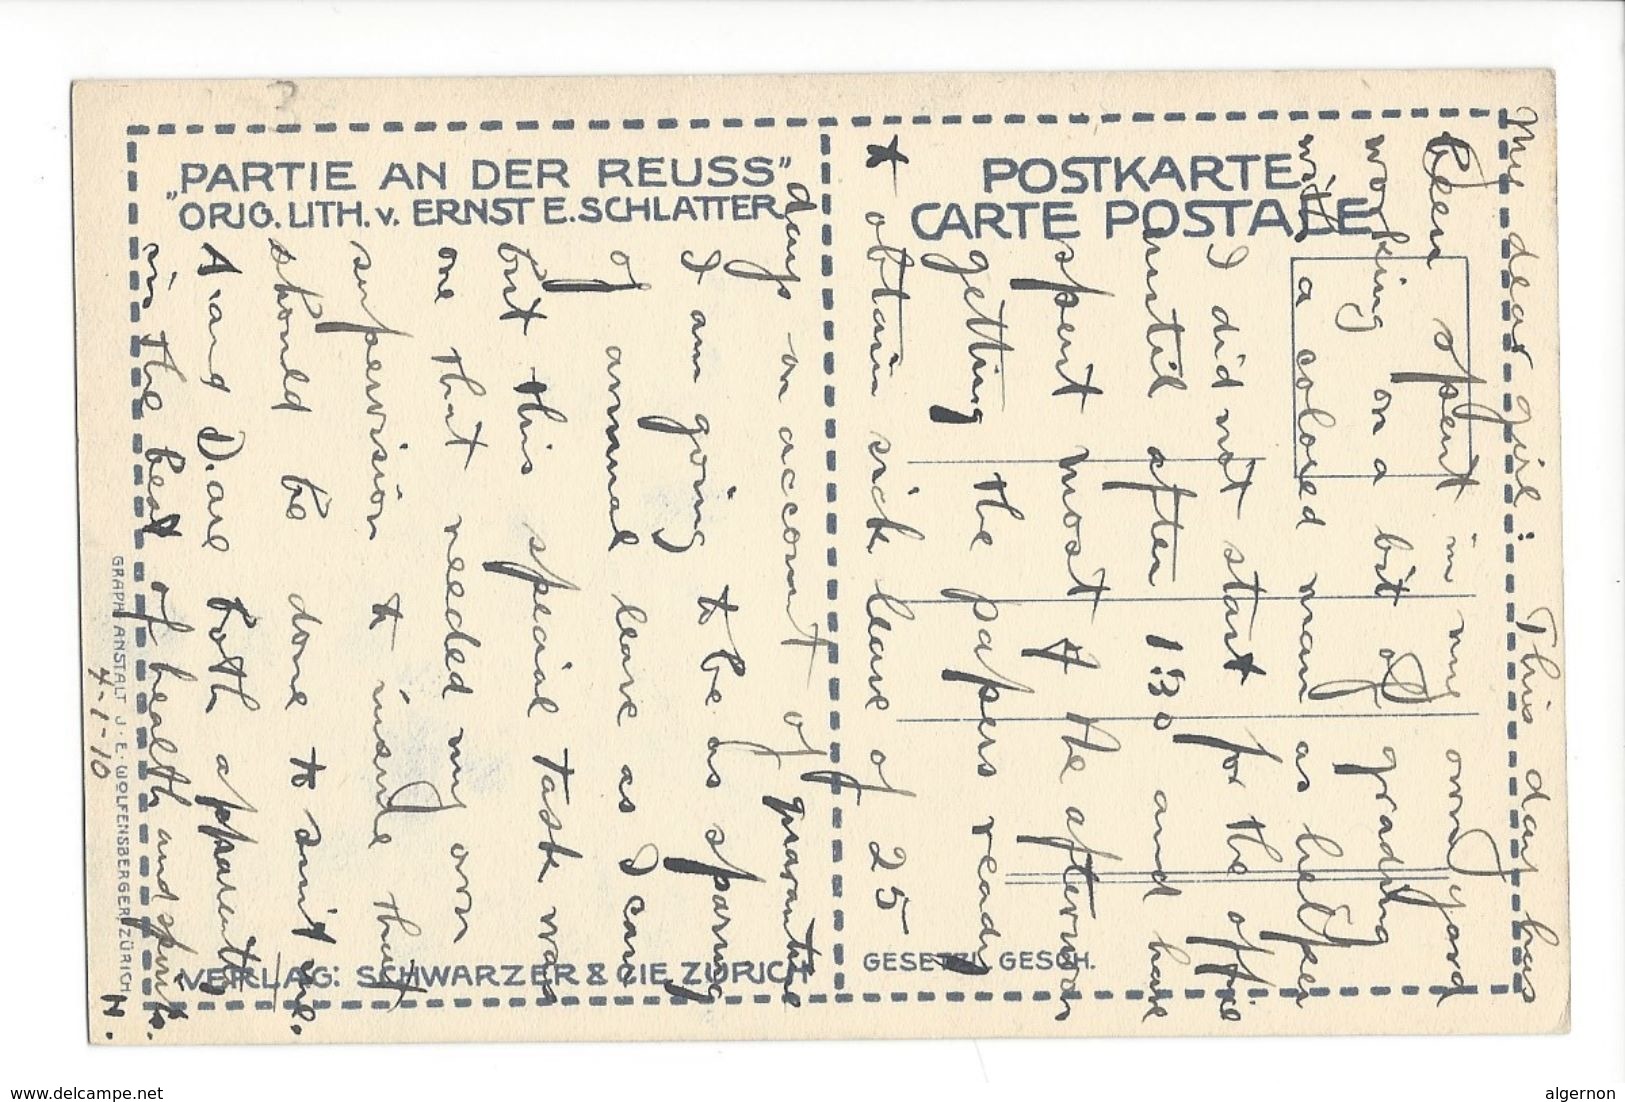 3
„PARTIE AN DER REUSS"
ORIG. LITH. v. ERNST E. SCHLATTER
POSTKARTE
CARTE POSTALE
My dear girl: This day has
been spent in my own yard
working on a bit of grading
with a colored man as helper
I did not start for the office
until after 1:30 and have
spent most of the afternoon
getting the papers ready
to obtain sick leave of 25
days on account of quarantine
I am going to be as sparing
of annual leave as I can
but this special task was
one that needed my own
supervision to insure that
should be done to suit me.
A. and D. are both apparently
in the best of health and spirits.
N.
4-1-10
GESETZL. GESCH.
VERLAG: SCHWARZER & CIE ZÜRICH
GRAPH. ANSTALT J. E. WOLFENSBERGER, ZÜRICH
www.delcampe.net
algernon